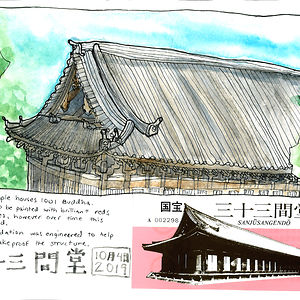 ple houses 1001 Buddha.
o be painted with brilliant reds
, however over time this
d.
dation was engineered to help
akeproof the structure.
十三間堂
10月4日
2019
国宝
A 002298
三十三間堂
SANJŪSANGENDŌ